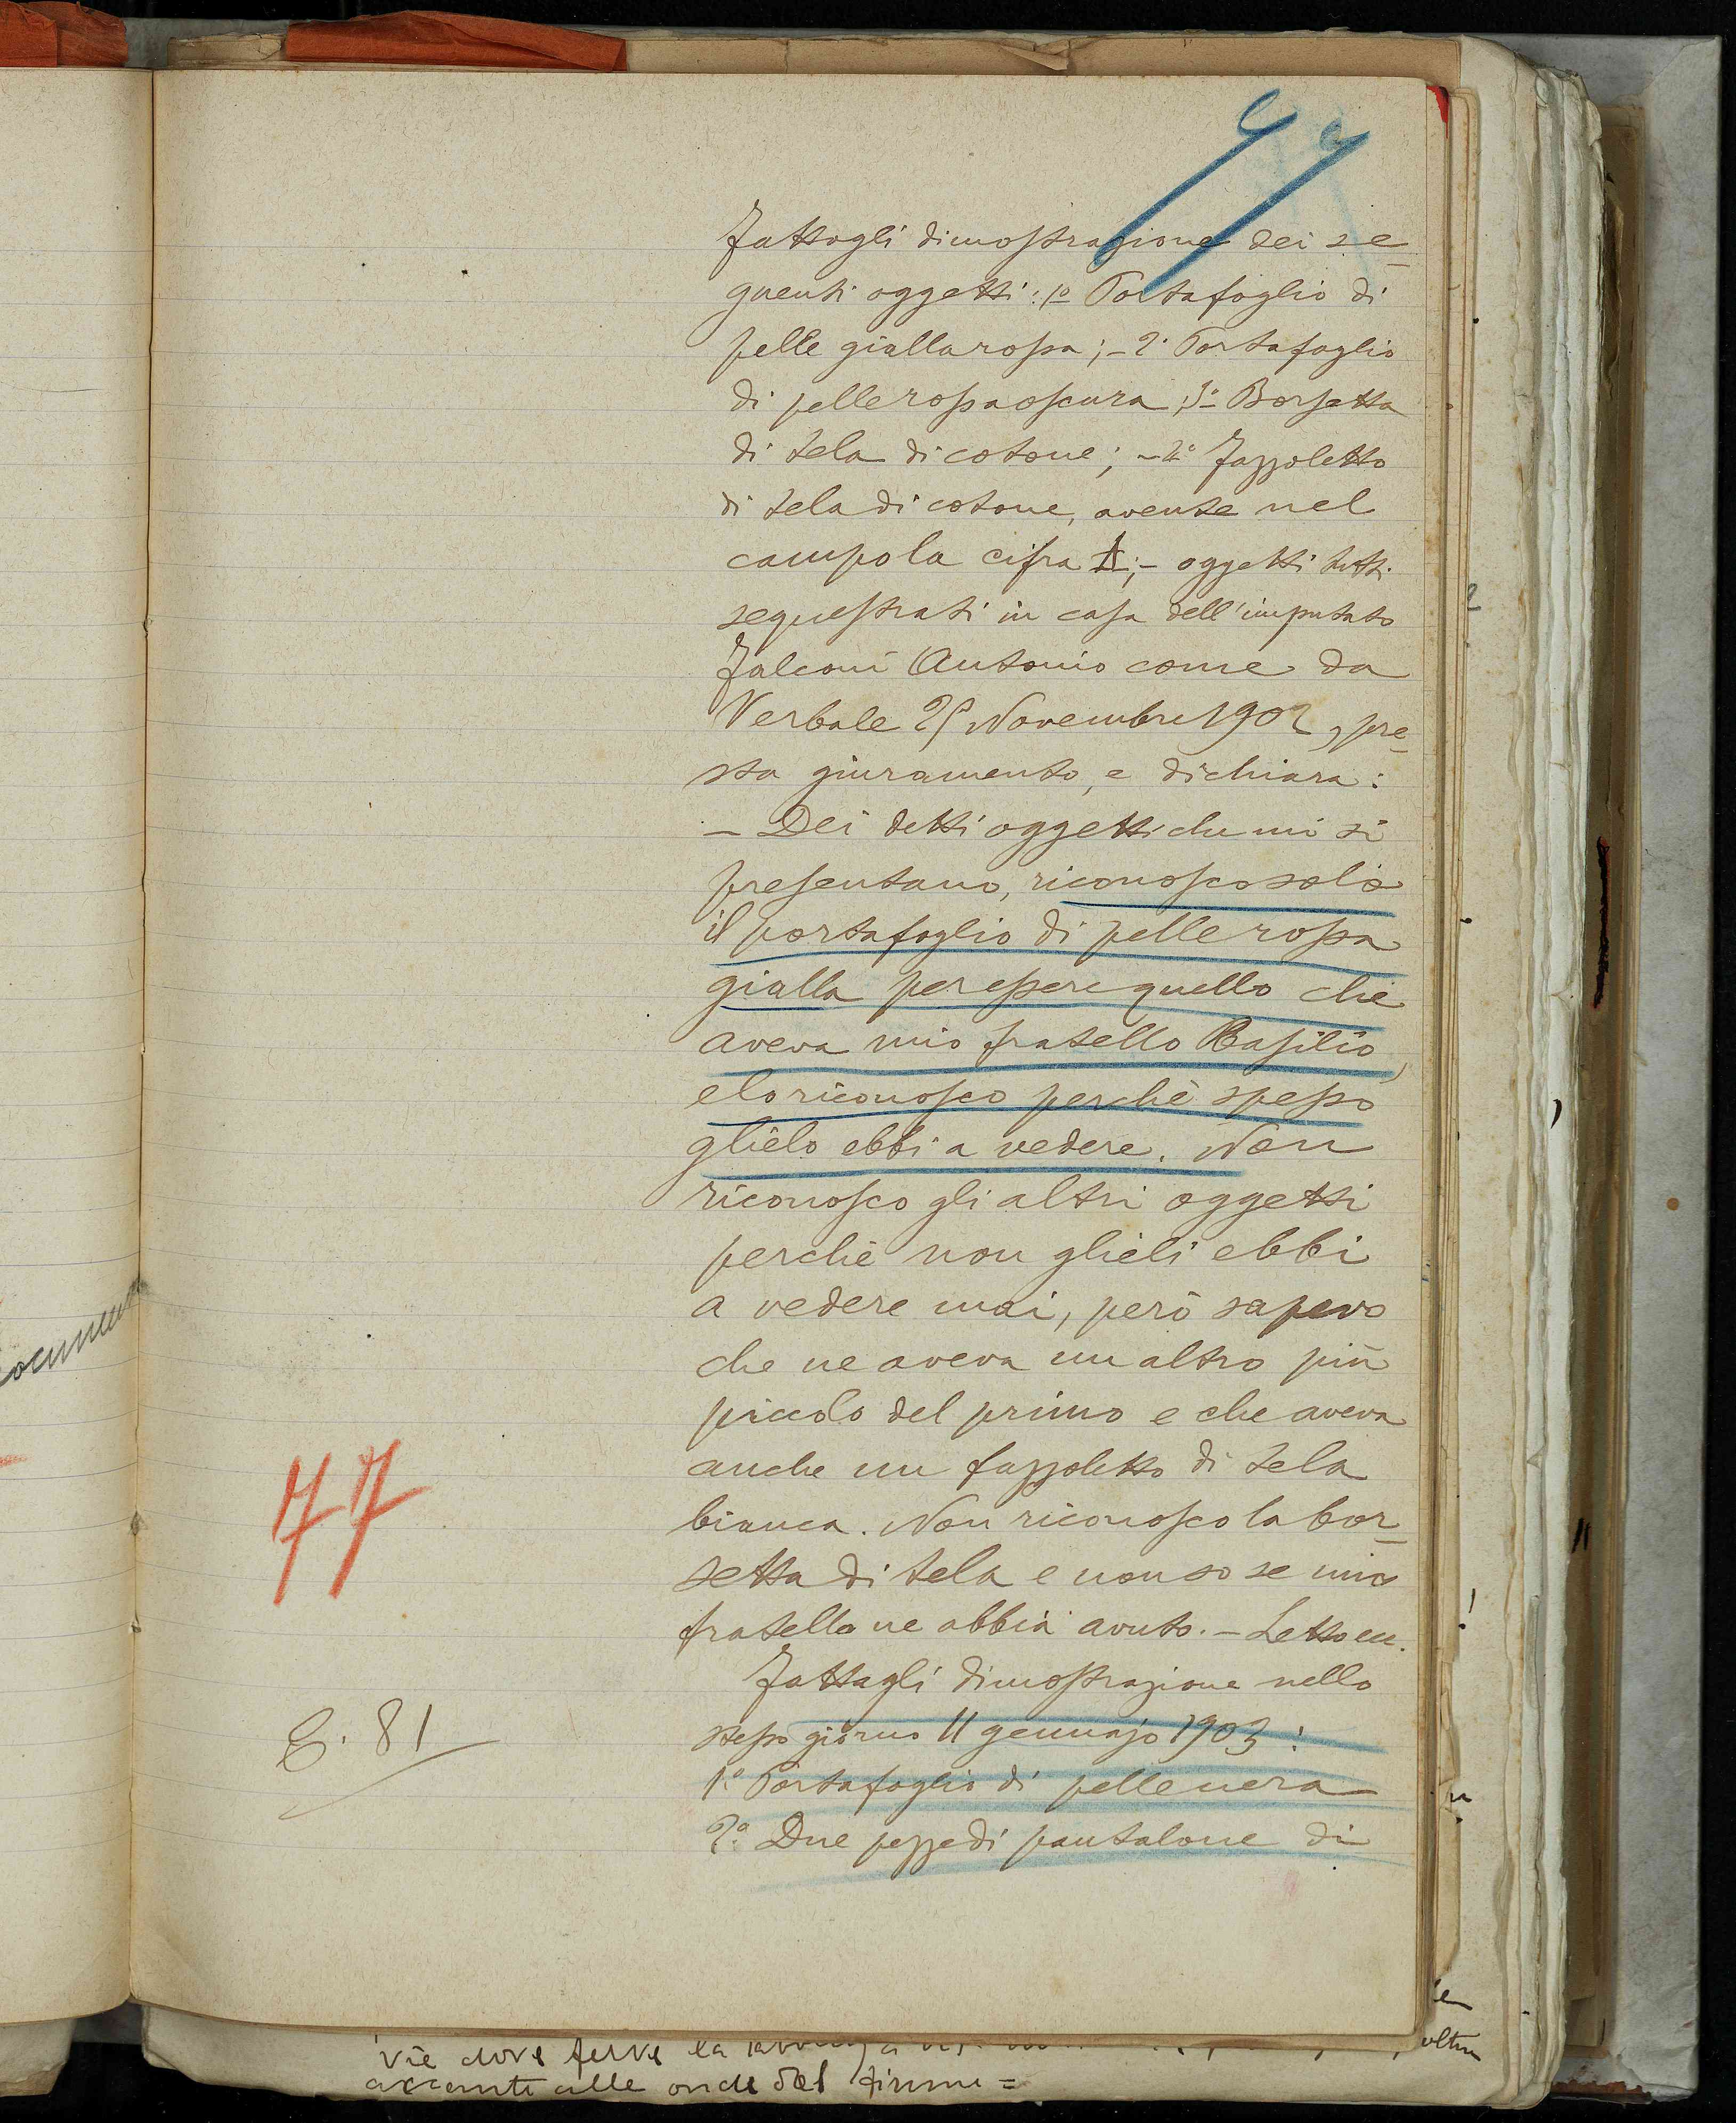 Fattogli dimostrazione dei se-
guenti oggetti: 1º Portafoglio di
pelle giallarossa; - 2º Portafoglio
di pelle rossa oscura; 3º- Borsetta
di tela di cotone; - 4º Fazzoletto
di tela di cotone, avente nel
campo la cifra A; - oggetti tutti
sequestrati in casa dell'imputato
Falconi Antonio come da
Verbale Novembre 1902, pre-
sta giuramento, e dichiara:
- Dei detti oggetti che mi si
presentano, riconosco solo
il portafoglio di pelle rossa
gialla per essere quello che
aveva mio fratello Basilio,
e lo riconosco perchè spesso
glielo ebbi a vedere. Non
riconosco gli altri oggetti
perchè non glieli ebbi
a vedere mai, però sapevo
che ne aveva un altro più
piccolo del primo e che aveva
anche un fazzoletto di tela
bianca. Non riconosco la bor-
setta di tela e non so se mio
fratello ne abbia avuto. - Letto ecc.
Fattagli dimostrazione nello
stesso giorno 11 gennajo 1903:
1.º Portafoglio di pelle nera
2.º Due pezze di pantalone di
77
81
vie dove ferve la
accanto alle onde del fiume =